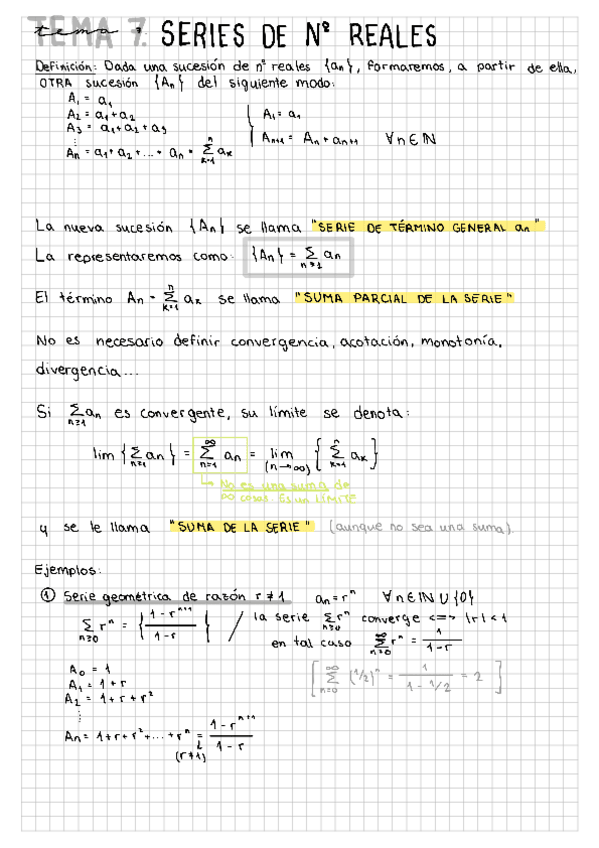 TEMA 7. SERIES DE Nº REALES
Definición: Dada una sucesión de nº reales {an}, formaremos, a partir de ella,
OTRA sucesión {An} del siguiente modo:
A₁ = a₁
A₂ = a₁+a₂
A₃ = a₁+a₂+a₃
⋮
An = a₁+a₂+...+an = Σ_{k=1}^{n} aₖ
A₁ = a₁
An+1 = An + an+1 ∀n∈ℕ
La nueva sucesión {An} se llama "SERIE DE TÉRMINO GENERAL an"
La representaremos como: {An} = Σ_{n≥1} an
El término An = Σ_{k=1}^{n} aₖ se llama "SUMA PARCIAL DE LA SERIE"
No es necesario definir convergencia, acotación, monotonía,
divergencia...
Si Σ_{n≥1} an es convergente, su límite se denota:
lim {Σ_{n≥1} an} = Σ_{n=1}^{∞} an = lim_{(n→∞)} {Σ_{k=1}^{n} aₖ}
↳ No es una suma de
∞ cosas. Es un LÍMITE
y se le llama "SUMA DE LA SERIE" (aunque no sea una suma).
Ejemplos:
① Serie geométrica de razón r≠1 an = rⁿ ∀n∈ℕ∪{0}
Σ_{n≥0} rⁿ = {(1-rⁿ⁺¹)/(1-r)} / la serie Σ_{n≥0} rⁿ converge <=> |r|<1
en tal caso Σ_{n=0}^{∞} rⁿ = 1/(1-r)
[Σ_{n=0}^{∞} (1/2)ⁿ = 1/(1-1/2) = 2]
A₀ = 1
A₁ = 1+r
A₂ = 1+r+r²
⋮
An = 1+r+r²+...+rⁿ = (1-rⁿ⁺¹)/(1-r)
(r≠1)